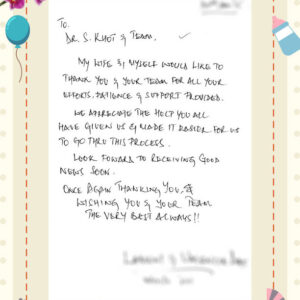 To.
Dr. S. Khot & Team.
My wife & myself would like to
thank you & your team for all your
efforts, patience & support provided.
We appreciate the help you all
have given us & made it easier for us
to go thru this process.
Look foward to receiving good
news soon.
Once again thanking you, &
wishing you & your team
the very best always!!